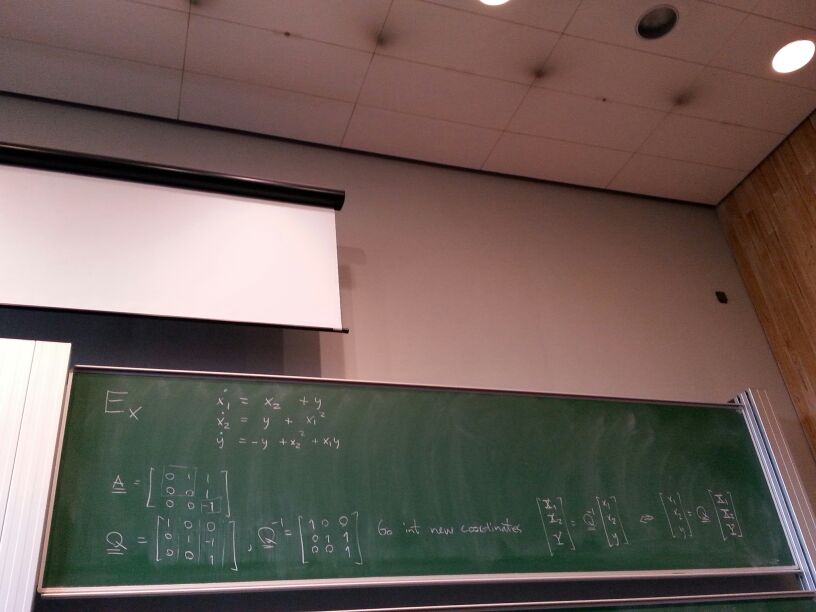 Ex
ẋ₁ = x₂ + y
ẋ₂ = y + x₁²
ẏ = -y + x₂² + x₁y
A = [0 1 1; 0 0 1; 0 0 -1]
Q = [1 0 0; 0 1 -1; 0 0 1], Q⁻¹ = [1 0 0; 0 1 1; 0 0 1] Go int new coordinates [X₁; X₂; Y] = Q⁻¹ [x₁; x₂; y] ⇔ [x₁; x₂; y] = Q [X₁; X₂; Y]